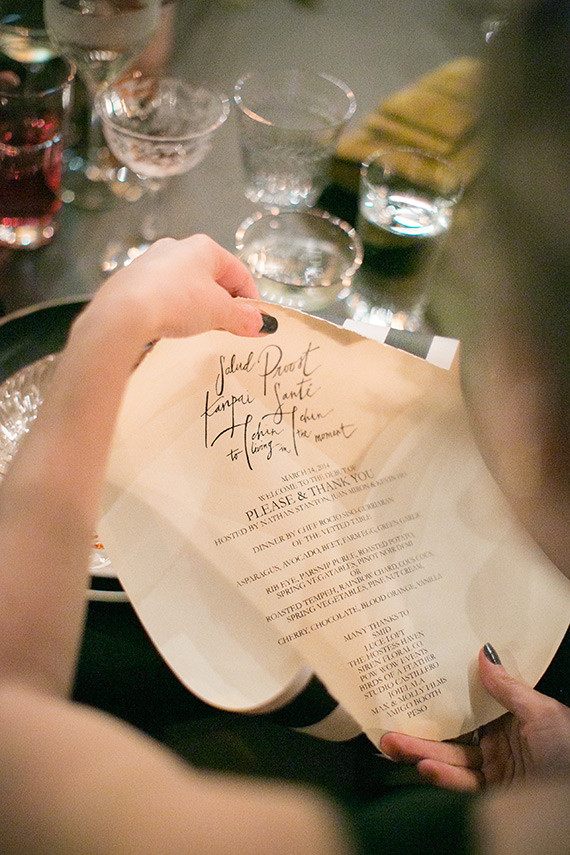 Salud Proost
Kanpai Santé
Tchin Tchin
to living in the moment
MARCH 14, 2014
WELCOME TO THE DEBUT OF
PLEASE & THANK YOU
HOSTED BY NATHAN STANTON, JUAN & KEVIN
DINNER BY CHEF ROCIO SISO-GURRIARAN
OF THE VETTED TABLE
ASPARAGUS, AVOCADO, BELT, FARM EGG, GREEN GARLIC
RIB EYE, PARSNIP PUREE, ROASTED POTATO,
SPRING VEGATABLES, PINOT NOIR DEMI
OR
ROASTED TEMPEH, RAINBOW CHARD, COUS COUS,
SPRING VEGETABLES, PINE NUT CREAM
CHERRY, CHOCOLATE, BLOOD ORANGE, VANILLA
MANY THANKS TO
SMID
LUCE LOFT
THE HOSTESS HAVEN
SIREN FLORAL CO.
POW WOW EVENTS
BIRDS OF A FEATHER
STUDIO CASTILLERO
JOIELALA
MAX & MOLLY FILMS
AMIGO BOOTH
PESO